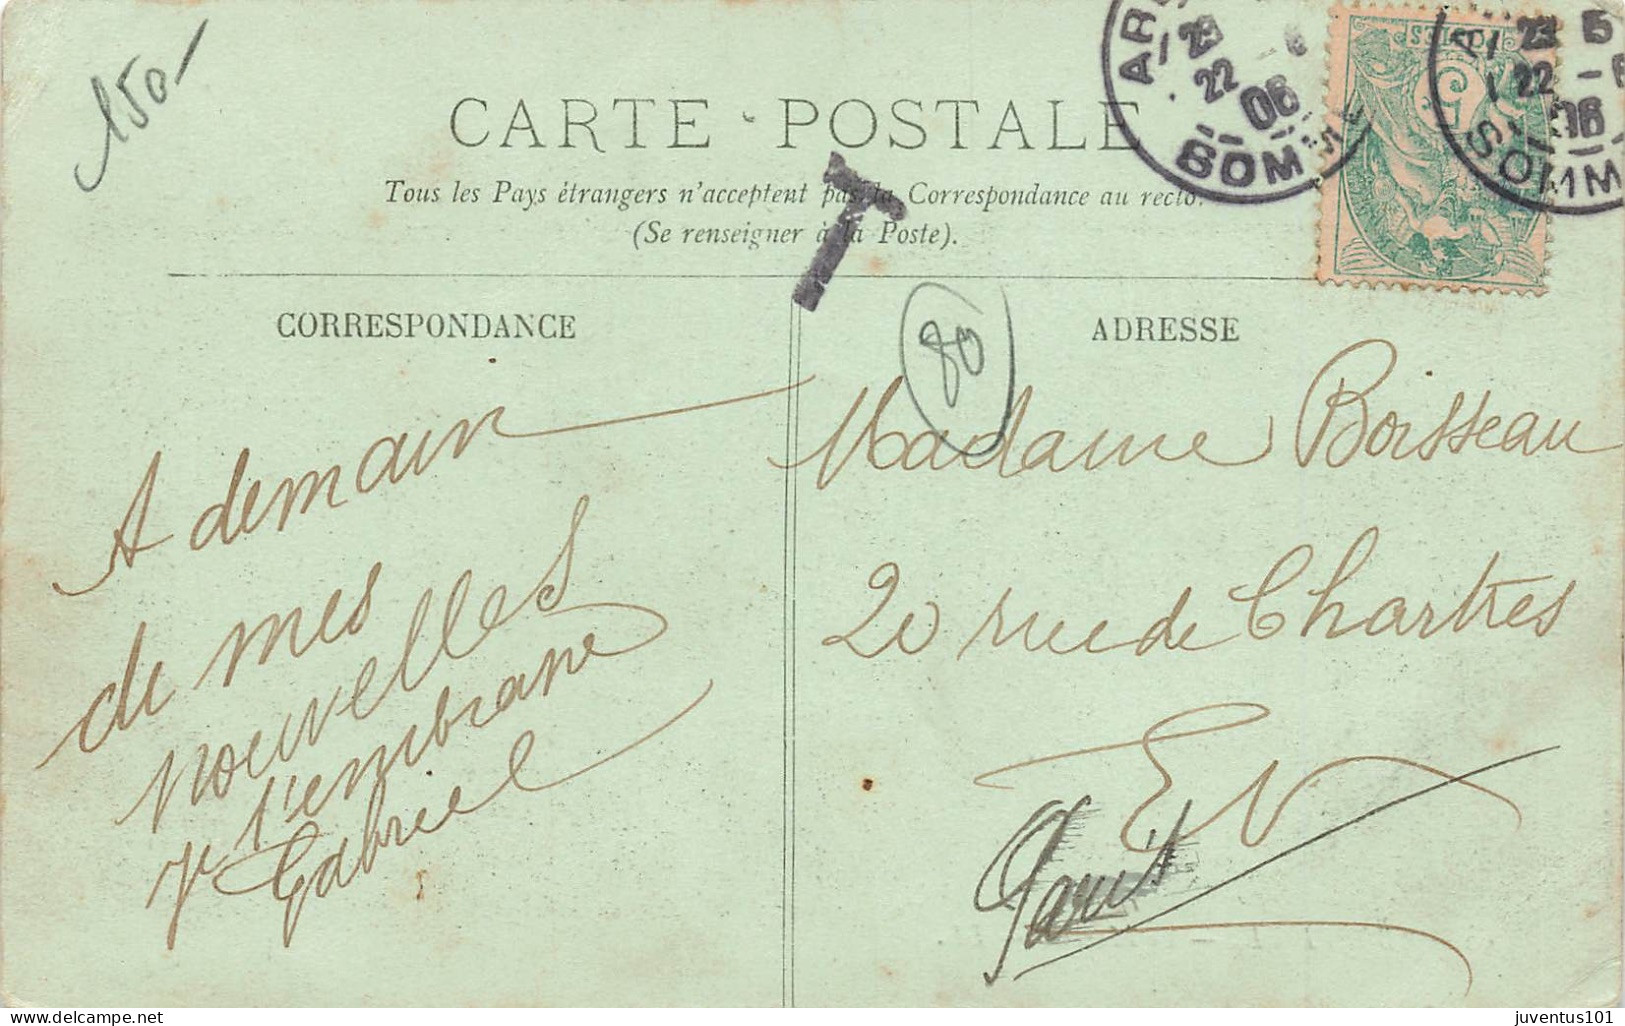 150-
CARTE POSTALE
Tous les Pays étrangers n'acceptent pas la Correspondance au recto.
(Se renseigner à la Poste).
T
22
06
SOMME
POSTES
5
22
06
SOMM
CORRESPONDANCE
ADRESSE
80
A demain
de mes
nouvelles
je t'embrasse
Gabriel
Madame Boisseau
20 rue de Chartres
EV
Paris
delcampe.net
juventus101